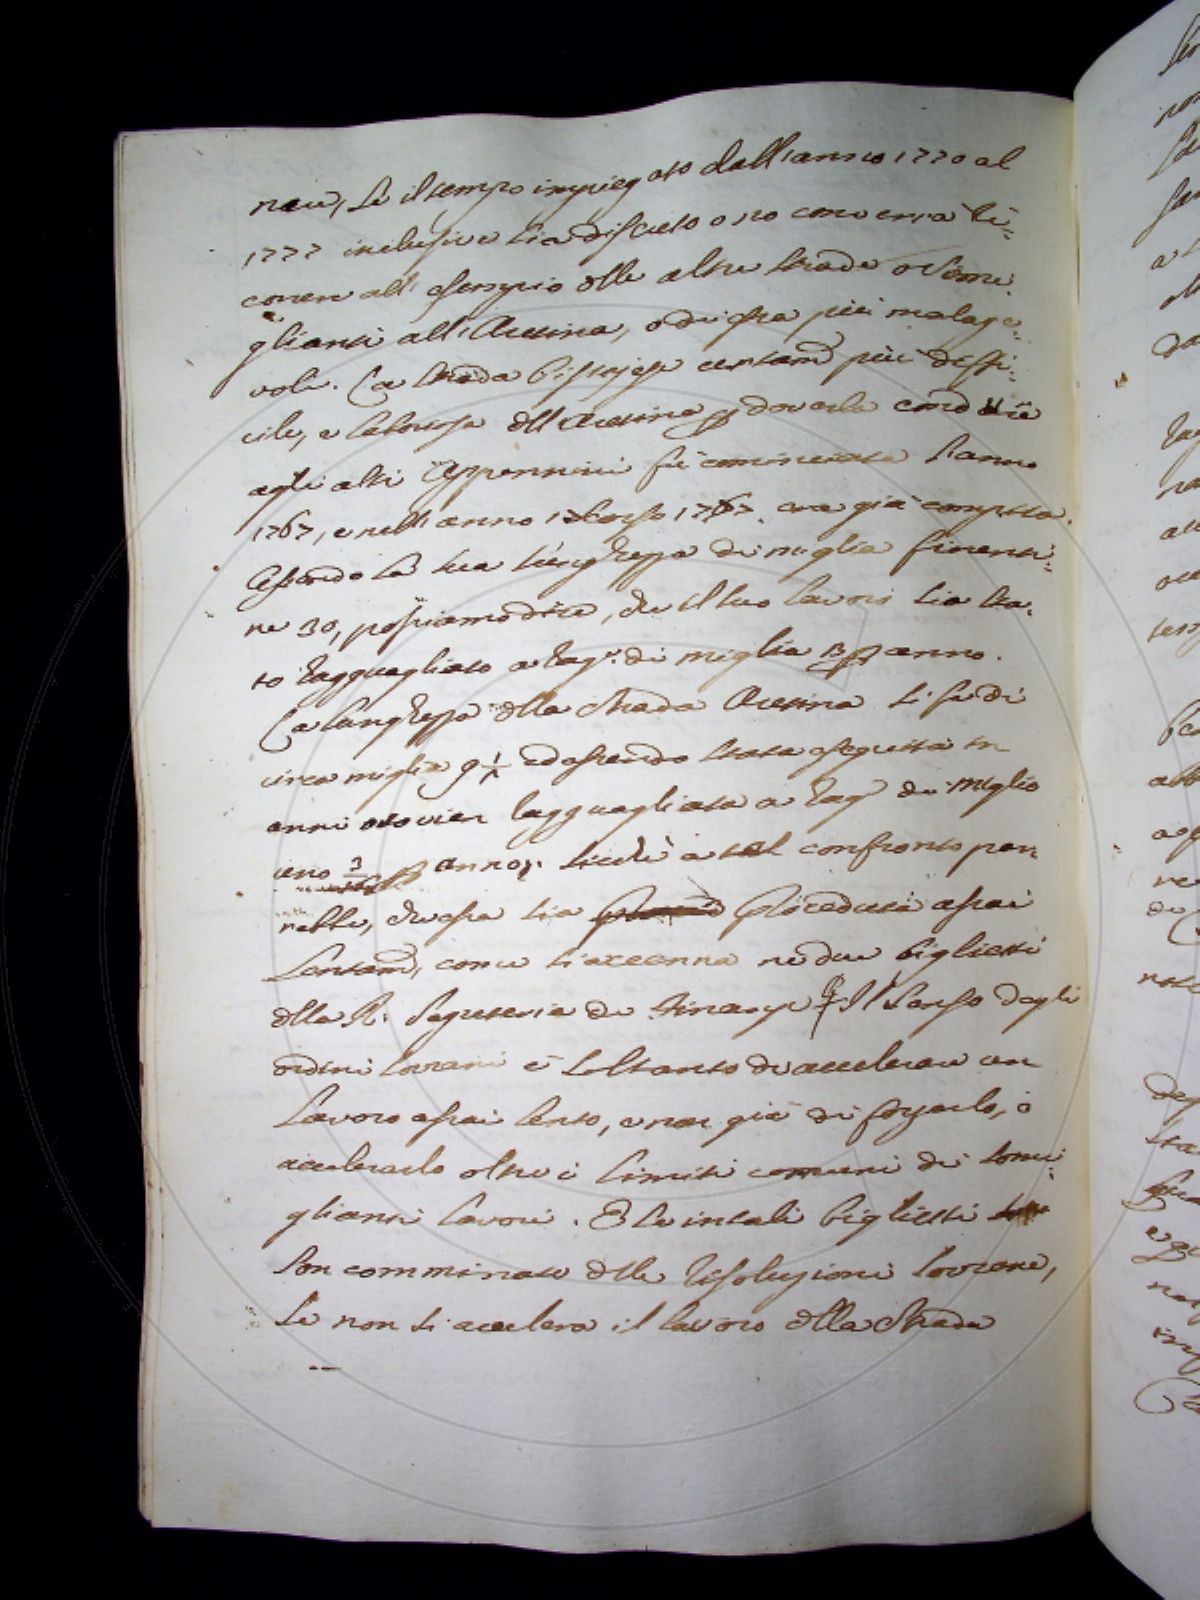 nare, se il tempo impiegato dall'anno 1770 al
1777 inclusive sia discreto o no converrà ri=
correre all' esempio delle altre strade o some=
glianti all'Aretina, o di essa più malage=
vole. La strada Pistojese certam.e più diffi=
cile, e laboriosa dell'Aretina p. doverla condurre
agli alti Appennini fù cominciata l'anno
1767, e nell'anno scorso 1777. era già compita.
Essendo la sua lunghezza di miglia fiorenti=
ne 30, possiamo dire, che il suo lavoro sia sta=
to ragguagliato a rag.e di miglia 3 p. anno.
La lunghezza della strada Aretina si fa di
circa miglia 9 ½ ed essendo stata eseguita in
anni otto vien ragguagliata a rag.e di miglio
uno p. anno, sicchè a tal confronto par=
rebbe, che essa sia proceduta assai
lentam.e, come si accenna ne due biglietti
della R. Segreteria di Finanze. Il senso degli
ordini sovrani è soltanto di accelerare un
lavoro assai lento, e non già di forzarlo, o
accelerarlo oltre i limiti comuni di somi=
glianti lavori. E se in tali biglietti
son comminate delle risoluzioni sovrane,
se non si accelera il lavoro della strada